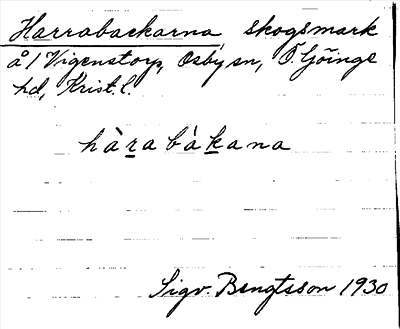 Harrabackarna skogsmark
å 1 Vigenstorp, Osby sn, Ö. Göinge
hd, Krist. l.
hàrabákana
Sigv. Bengtsson 1930